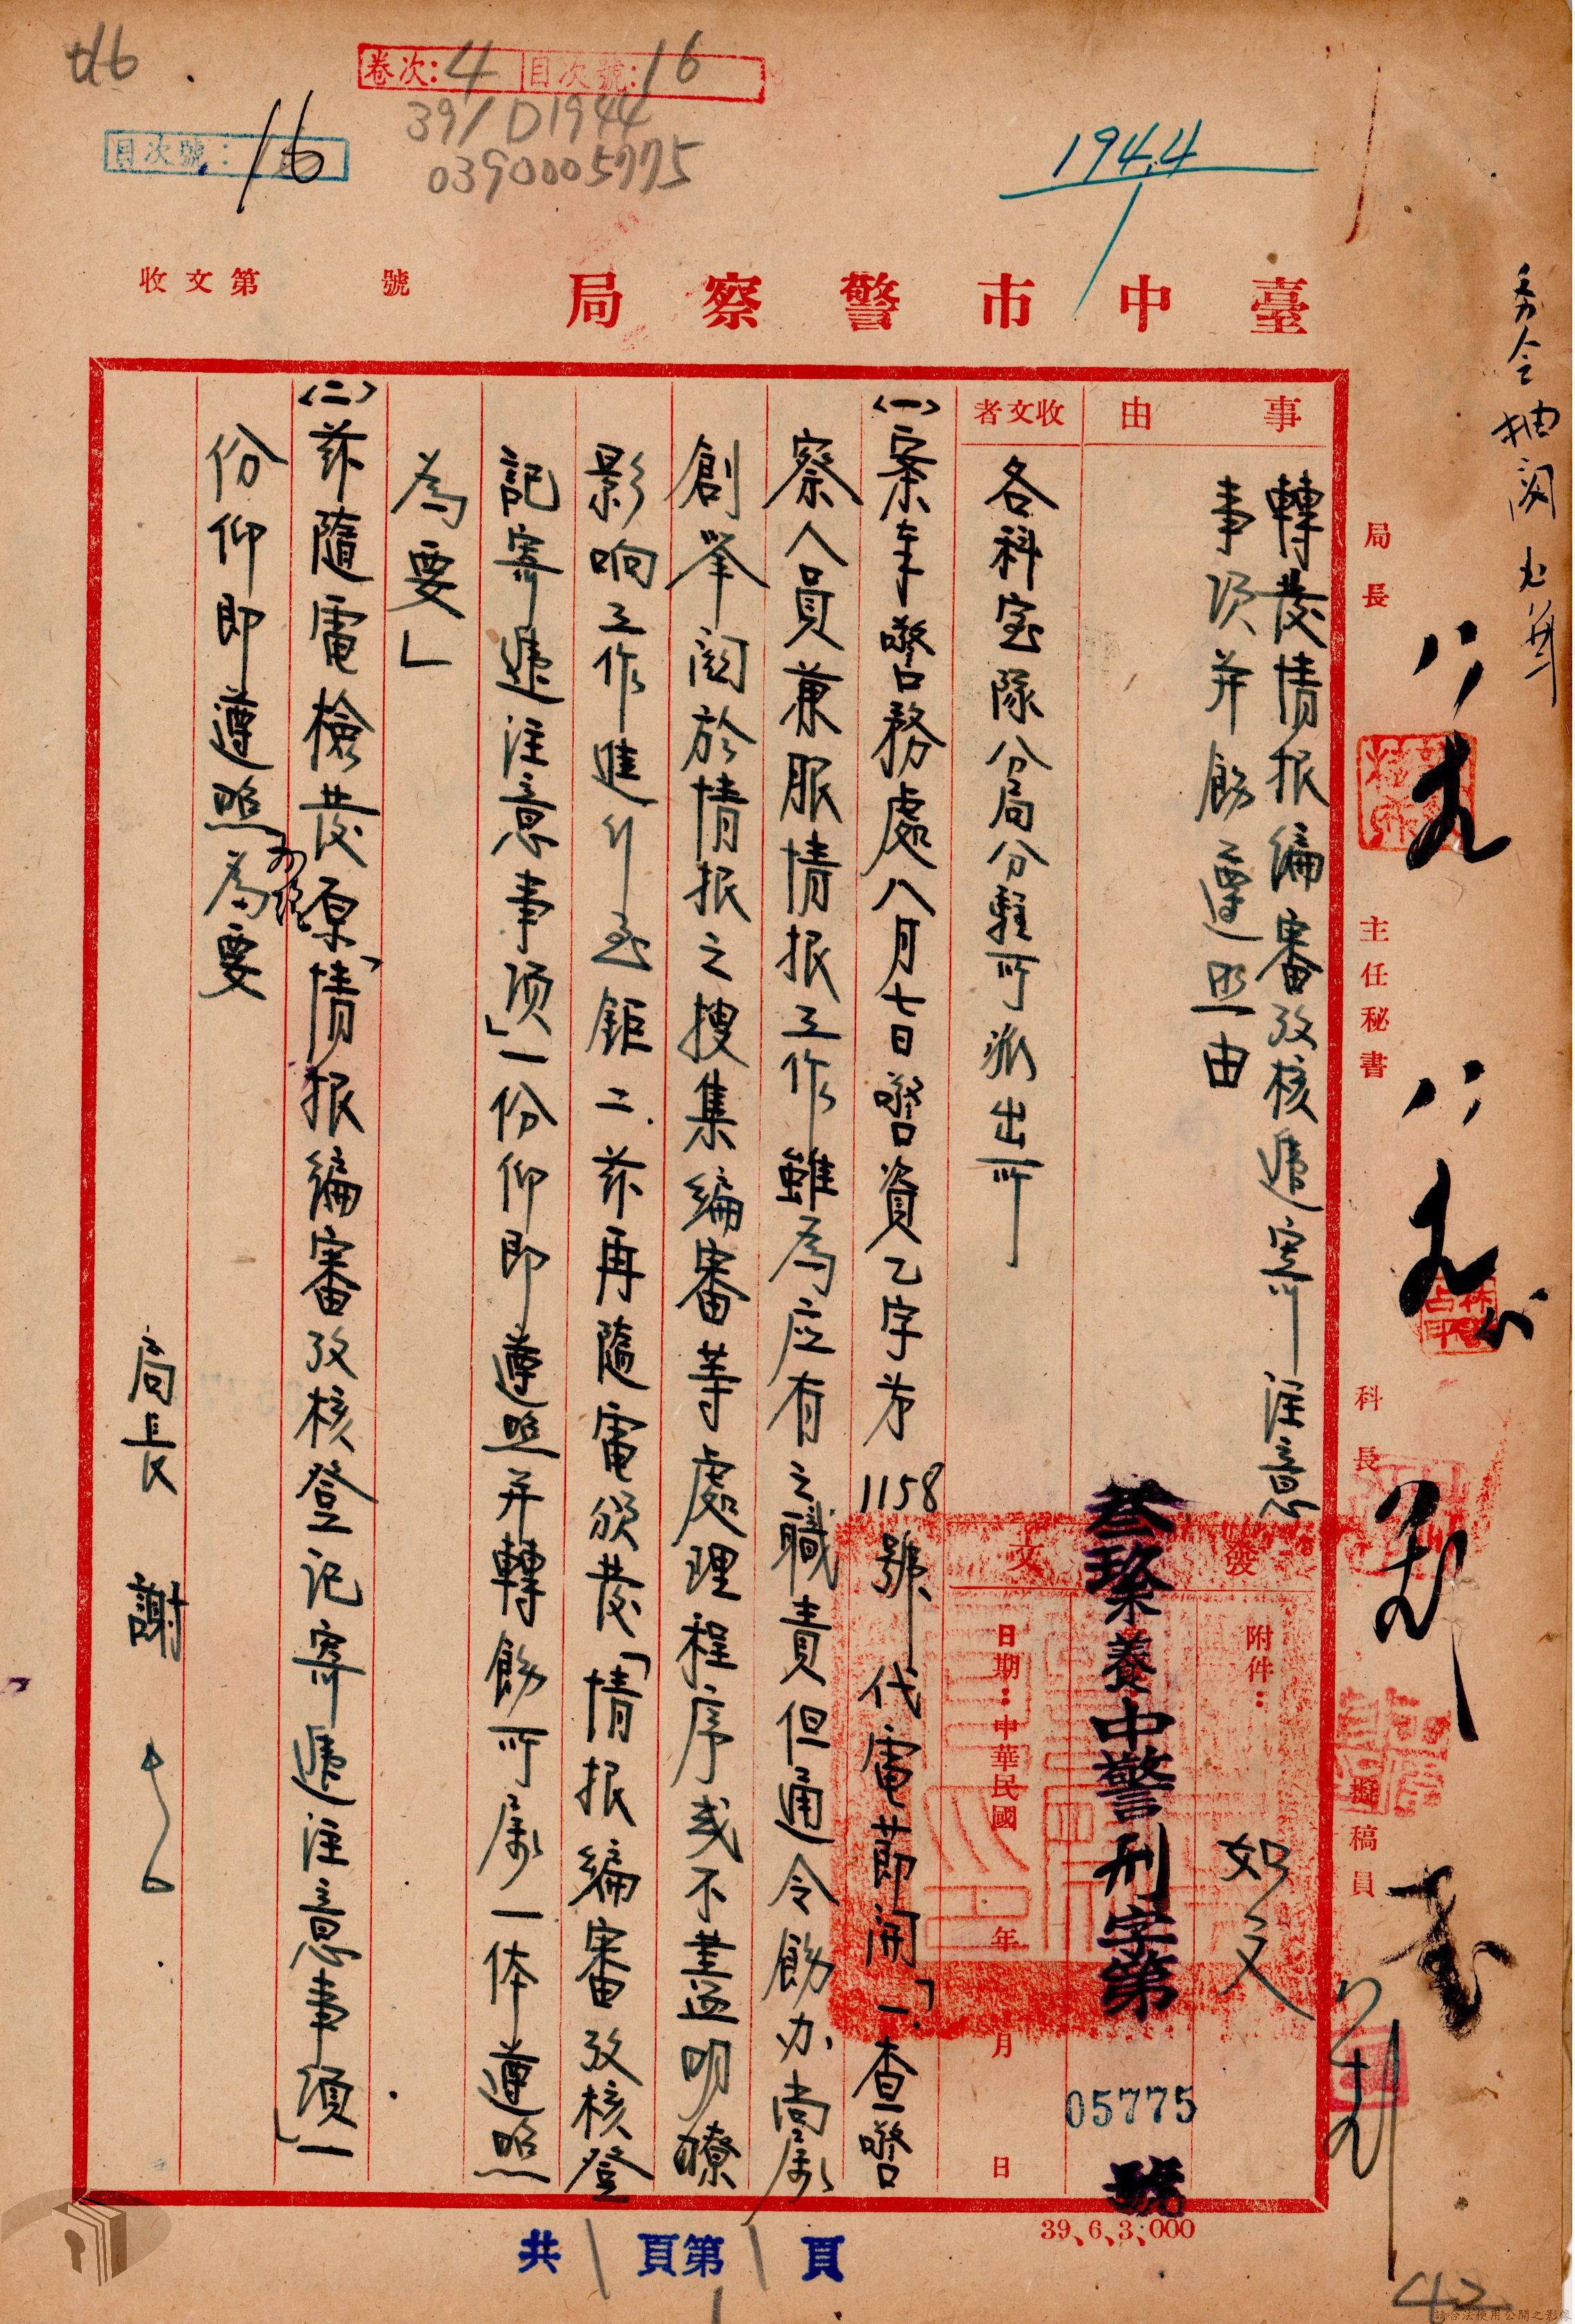 卷次：4 目次號：16
目次號：16
391/D1944
0390005775
1944
臺中市警察局
收文第 號
事由
轉發情报編審攷核遞寄注意
事項并飭遵照由
收文者
各科室隊分局分駐所派出所
發文
附件：如文
叁玖養中警刑字第05775號
日期：中華民國 年 月 日
〈一〉案奉警務處八月七日警資乙字第1158號代電節開「一、查警
察人員兼服情报工作雖為应有之職責但通令飭办尚屬
創举関於情报之搜集編審等處理程序或不盡明瞭
影响工作進行至鉅二、茲再隨電頒發「情报編審攷核登
記寄遞注意事項」一份仰即遵照并轉飭所屬一体遵照
為要」
〈二〉茲隨電檢發原「情报編審攷核登記寄遞注意事項」一
份仰即遵照為要
局長 謝
局長
主任秘書
科長
擬稿員
共1頁第1頁
39、6、3、000